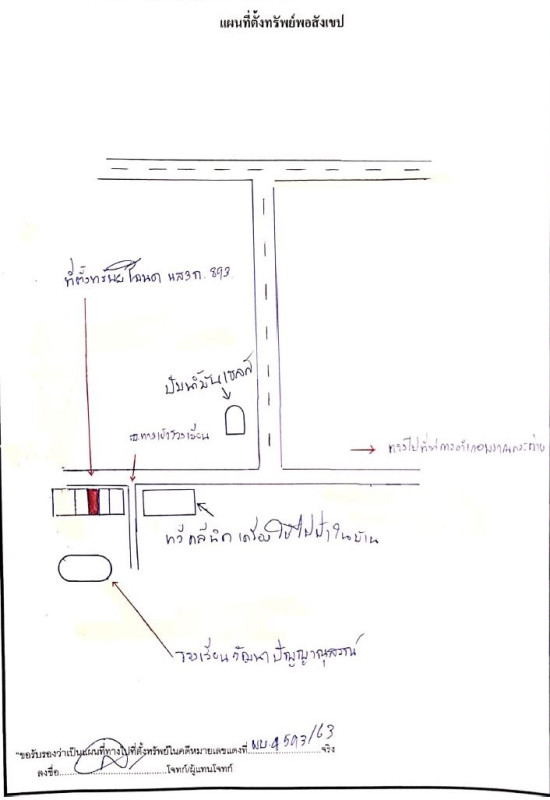 แผนที่ตั้งทรัพย์พอสังเขป
ที่ตั้งทรัพย์โฉนด นส3ก. 893.
ปั๊มน้ำมันเชลล์
ทางเข้าโรงเรียน
ทางไปที่ว่าการอำเภอ
ทวีคลีนิค เครื่องใช้ไฟฟ้าในบ้าน
โรงเรียนวัฒนา
"ขอรับรองว่าเป็นแผนที่ทางไปที่ตั้งทรัพย์ในคดีหมายเลขแดงที่ ผบ.4593/63 จริง
ลงชื่อ..............................โจทก์/ผู้แทนโจทก์